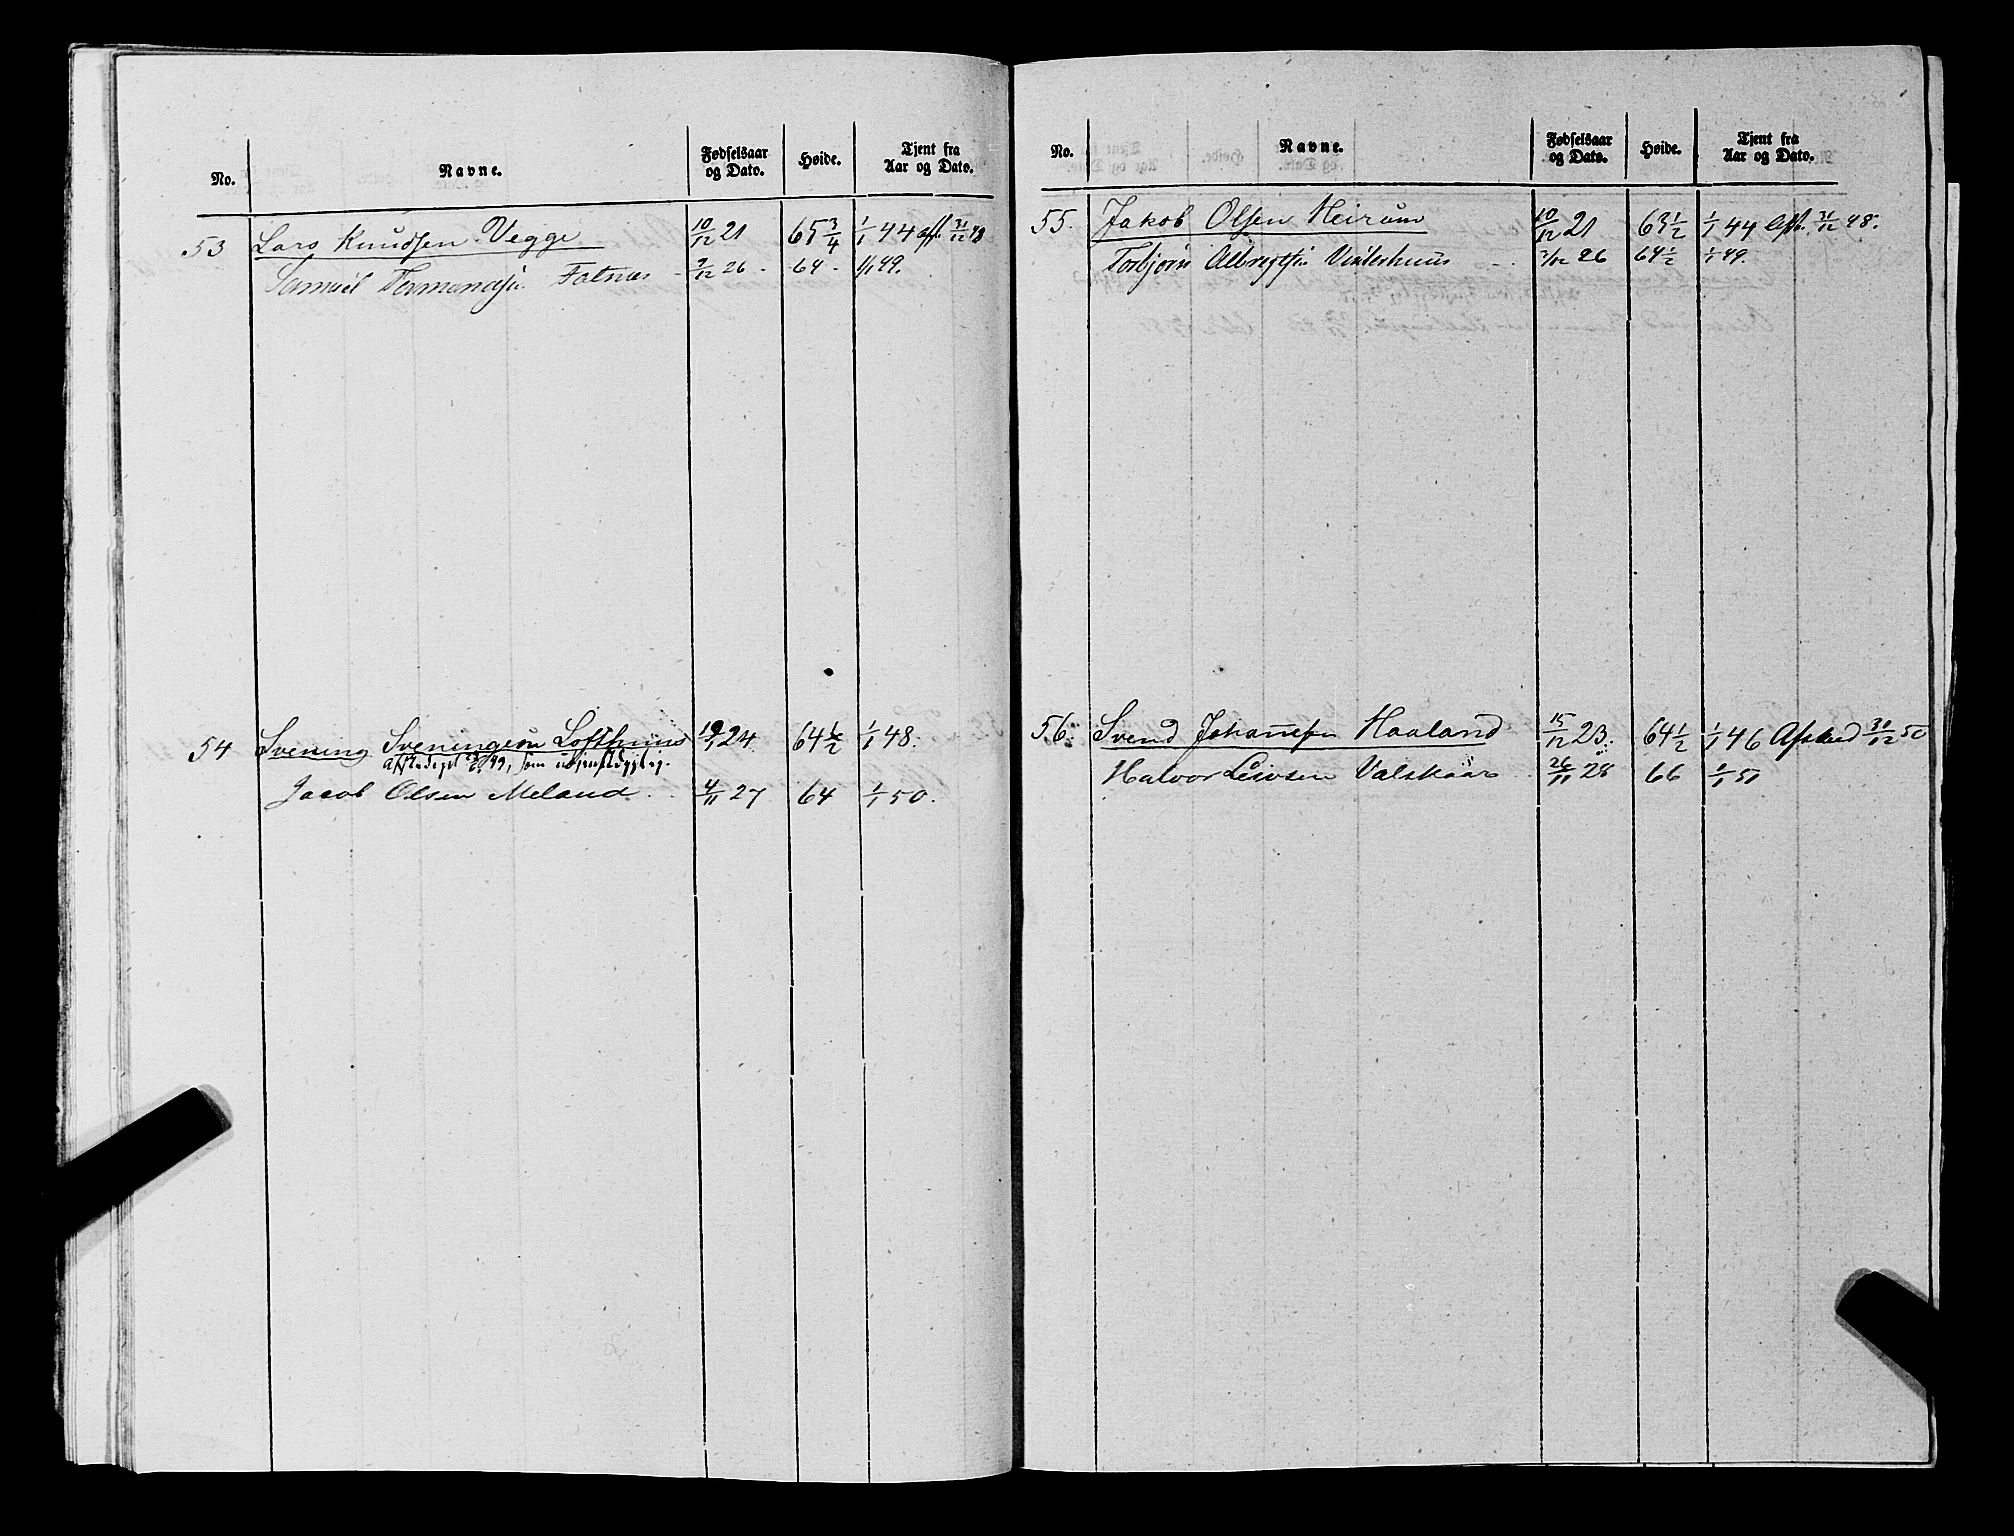 No. Navne. Fødselsaar og Dato. Høide. Tjent fra Aar og Dato.
53 Lars Knudsen Vegge 10/12 21 65 3/4 1/1 44 afsk. 31/12 48
Samuel Tormondsen Fatnæs 9/12 26. 64. 1/1 49.
54 Svening Sveningsen Lofthuus 24 64 1/2 1/1 48.
som utjenstdygtig.
Jacob Olsen Meland 4/11 27 64 1/1 50.
No. Navne. Fødselsaar og Dato. Høide. Tjent fra Aar og Dato.
55. Jakob Olsen Heirum 10/12 21 63 1/2 1/1 44 Afsk. 31/12 48.
Torbjørn Albregtsen Vinterhuus 26 64 1/2 1/1 49.
56. Svend Johannesen Haaland 15/12 23. 64 1/2 1/1 46 Afsked 31/12 50
Halvor Leivsen Valskaar 26/11 28 66 1/1 51